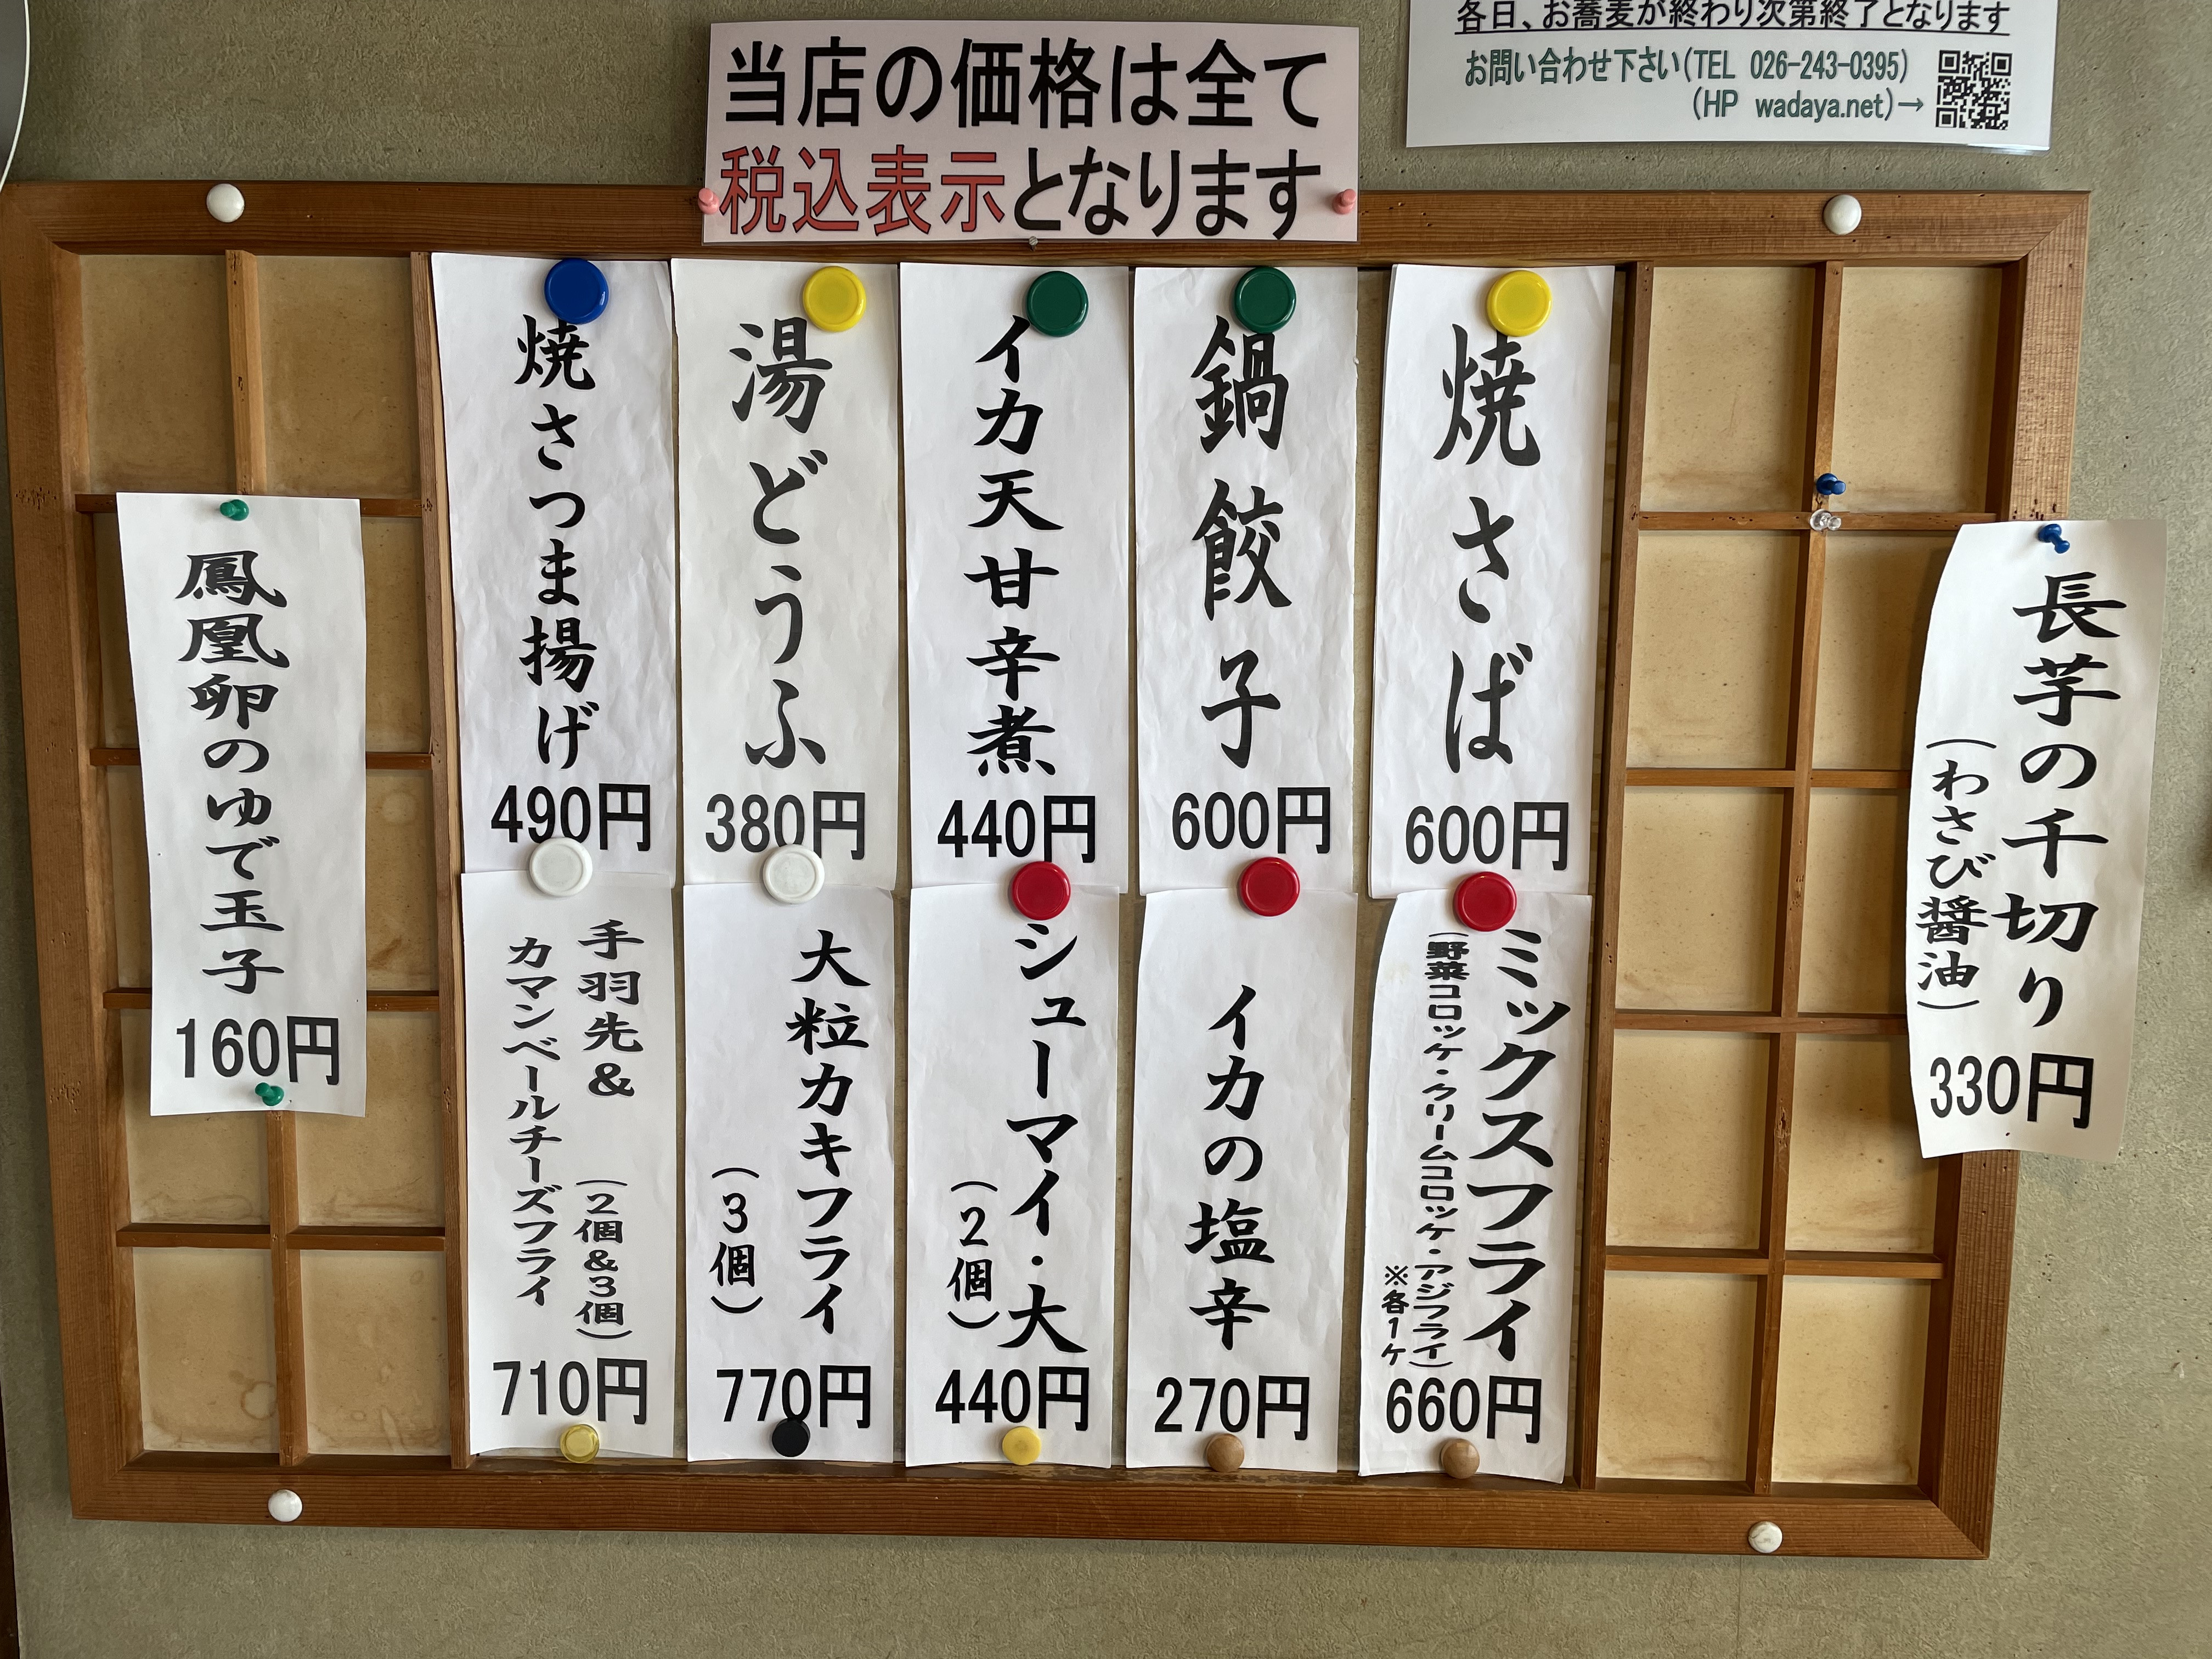 各日、お蕎麦が終わり次第終了となります
お問い合わせ下さい(TEL 026-243-0395)
(HP wadaya.net)→
当店の価格は全て
税込表示となります
長芋の千切り
(わさび醤油)
330円
焼さば
600円
鍋餃子
600円
イカ天甘辛煮
440円
湯どうふ
380円
焼さつま揚げ
490円
ミックスフライ
(野菜コロッケ・クリームコロッケ・アジフライ)
※各1ケ
660円
イカの塩辛
270円
シューマイ・大
(2個)
440円
大粒カキフライ
(3個)
770円
手羽先& (2個&3個)
カマンベールチーズフライ
710円
鳳凰卵のゆで玉子
160円